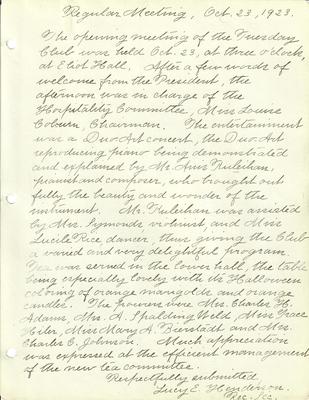 Regular Meeting, Oct. 23, 1923.
The opening meeting of the Tuesday
Club was held Oct. 23, at three o'clock,
at Eliot Hall. After a few words of
welcome from the President, the
afternoon was in charge of the
Hospitality Committee, Miss Louise
Coburn, Chairman. The entertainment
was a Duo Art concert, the Duo Art
reproducing piano being demonstrated
and explained by Mr. Anis Fuleihan,
pianist and composer, who brought out
fully the beauty and wonder of the
instrument. Mr. Fuleihan was assisted
by Mrs. Symonds violinist, and Miss
Lucile Rice dancer, thus giving the Club
a varied and very delightful program.
Tea was served in the lower hall, the table
being especially lovely with its Halloween
coloring of orange marigolds and orange
candles. The pourers were Mrs. Charles H.
Adams, Mrs. A. Spalding Weld, Miss Grace
Hiler, Miss Mary A. Bierstadt and Mrs.
Charles E. Johnson. Much appreciation
was expressed at the efficient management
of the new tea committee.
Respectfully submitted,
Lucy E. Henderson.
Rec. Sec.